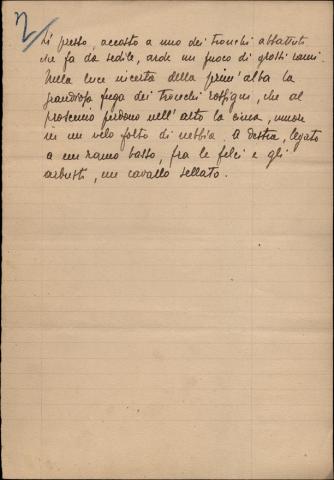 2
lì presso, accosto a uno dei tronchi abbattuti
che fa da sedile, arde un fuoco di grossi rami.
Nella luce incerta della prim'alba la
grandiosa fuga dei tronchi rossigni, che al
proscenio perdono nell'alto la cima, muore
in un velo folto di nebbia. A destra, legato
a un ramo basso, fra le felci e gli
arbusti, un cavallo sellato.